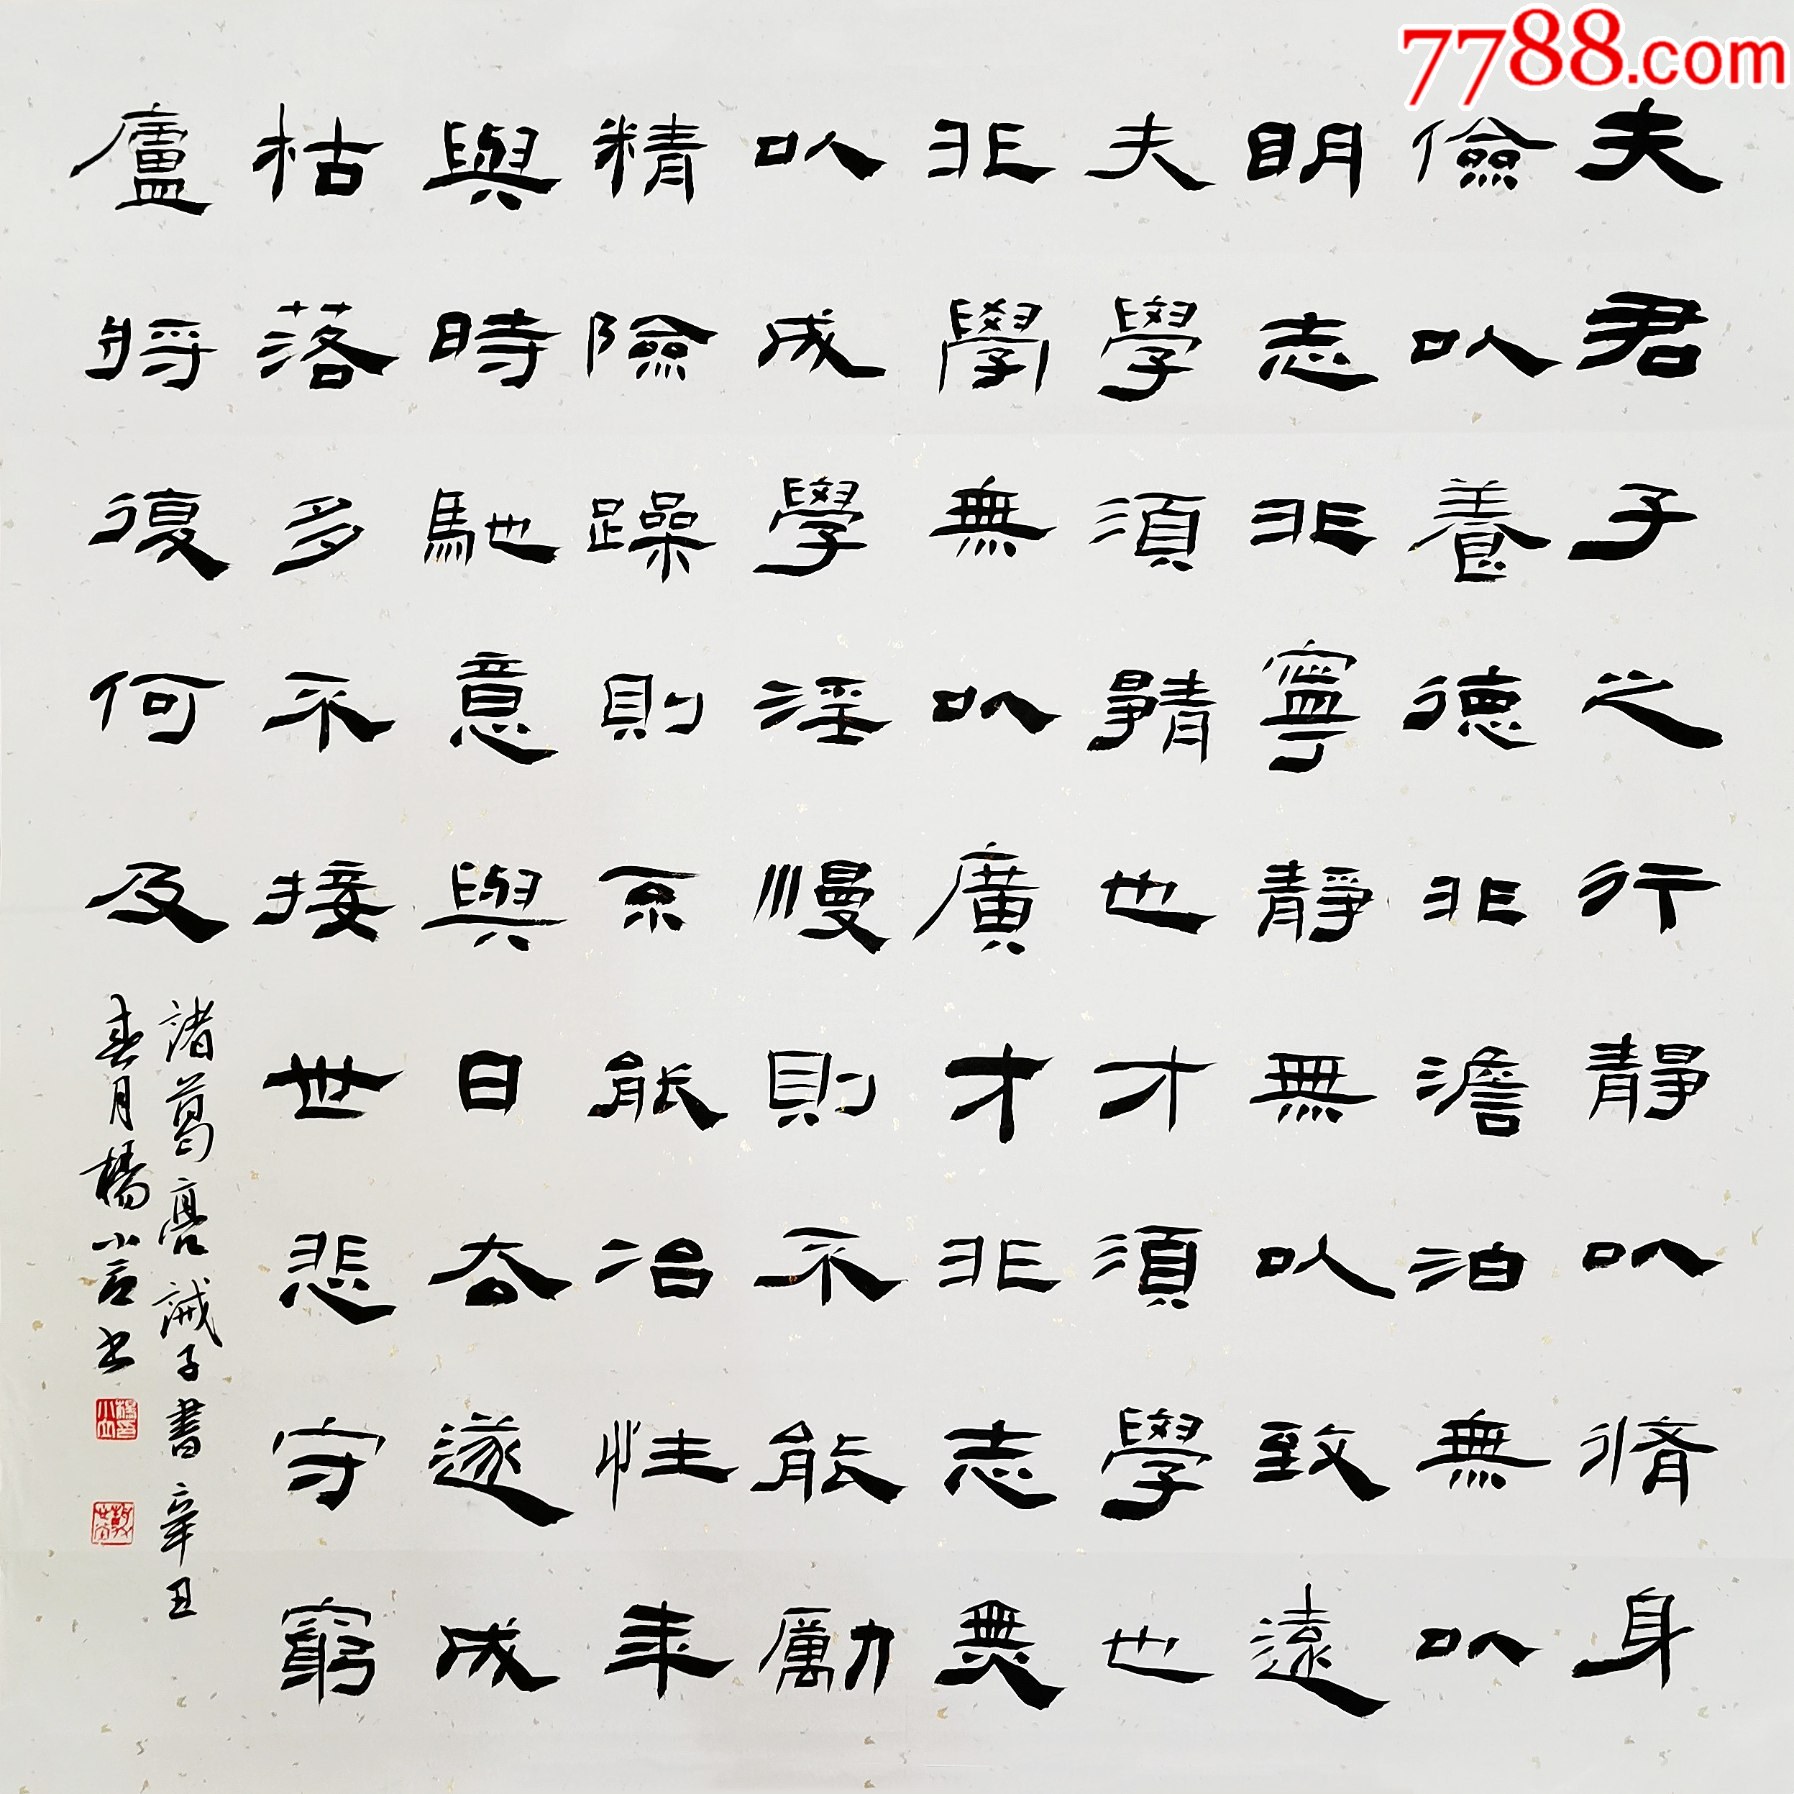 7788.com
夫君子之行靜以脩身
儉以養德非澹泊無以
明志非寧靜無以致遠
夫學須靜也才須學也
非學無以廣才非志無
以成學淫慢則不能勵
精險躁則不能冶性年
與時馳意與日去遂成
枯落多不接世悲守窮
廬將復何及
諸葛亮誡子書辛丑
春月楊小书